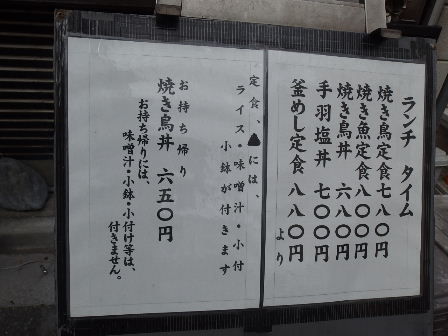 ランチ タイム
焼き鳥定食 七八〇円
焼き魚定食 八〇〇円
焼き鳥丼 六八〇円
手羽塩丼 七〇〇円
釜めし定食 八八〇円
より
定食、▲には、
ライス・味噌汁・小付
小鉢が付きます
お持ち帰り
焼き鳥丼 六五〇円
お持ち帰りには、
味噌汁・小鉢・小付け等は、
付きません。